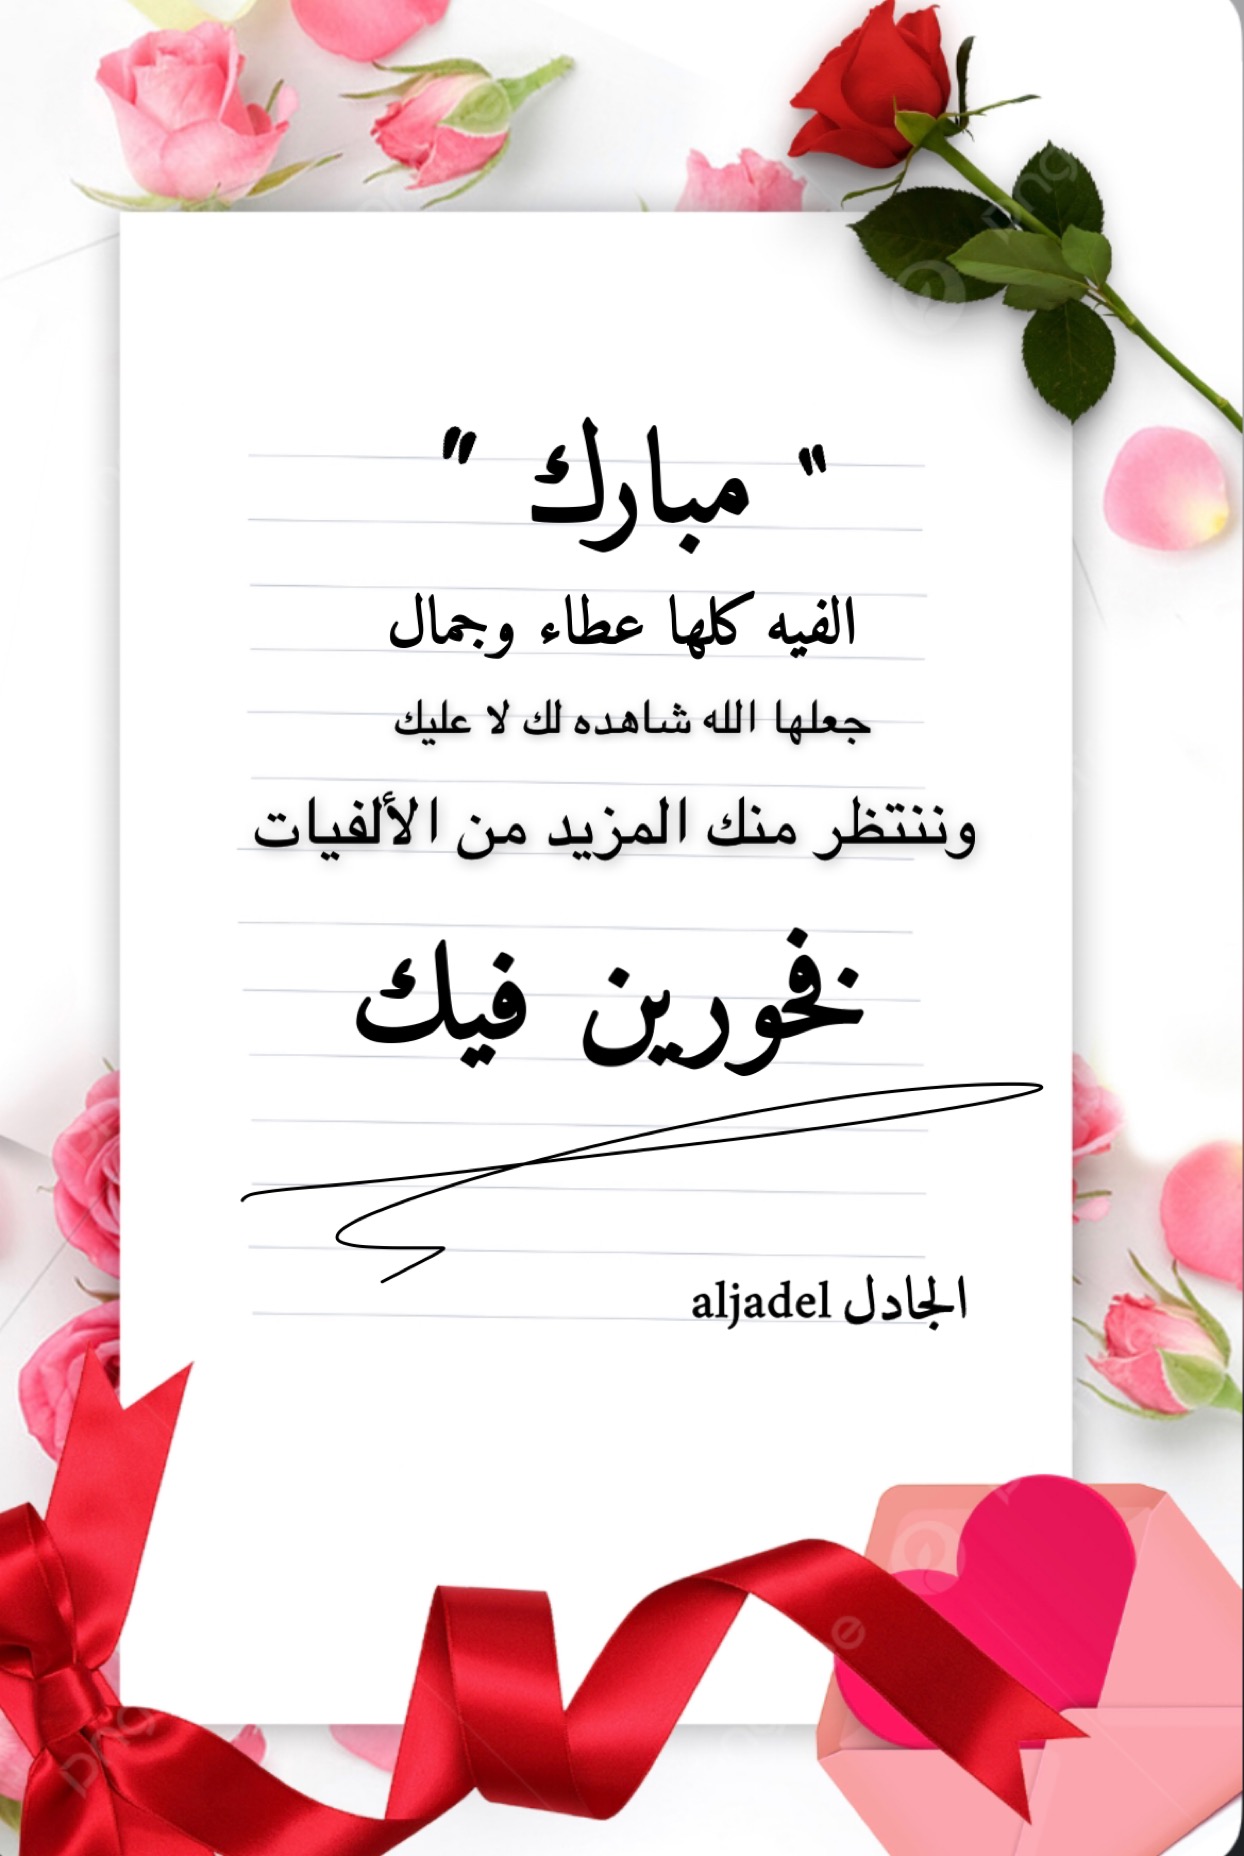 " مبارك "
الفيه كلها عطاء وجمال
جعلها الله شاهده لك لا عليك
وننتظر منك المزيد من الألفيات
فخورين فيك
الجادل aljadel